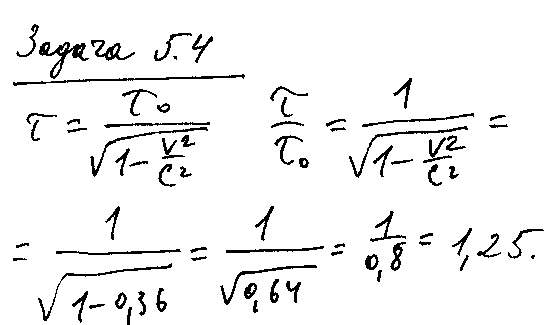 Задача 5.4
τ = τ₀ / √(1 − v²/c²)   τ/τ₀ = 1 / √(1 − v²/c²) =
= 1 / √(1 − 0,36) = 1 / √0,64 = 1 / 0,8 = 1,25.